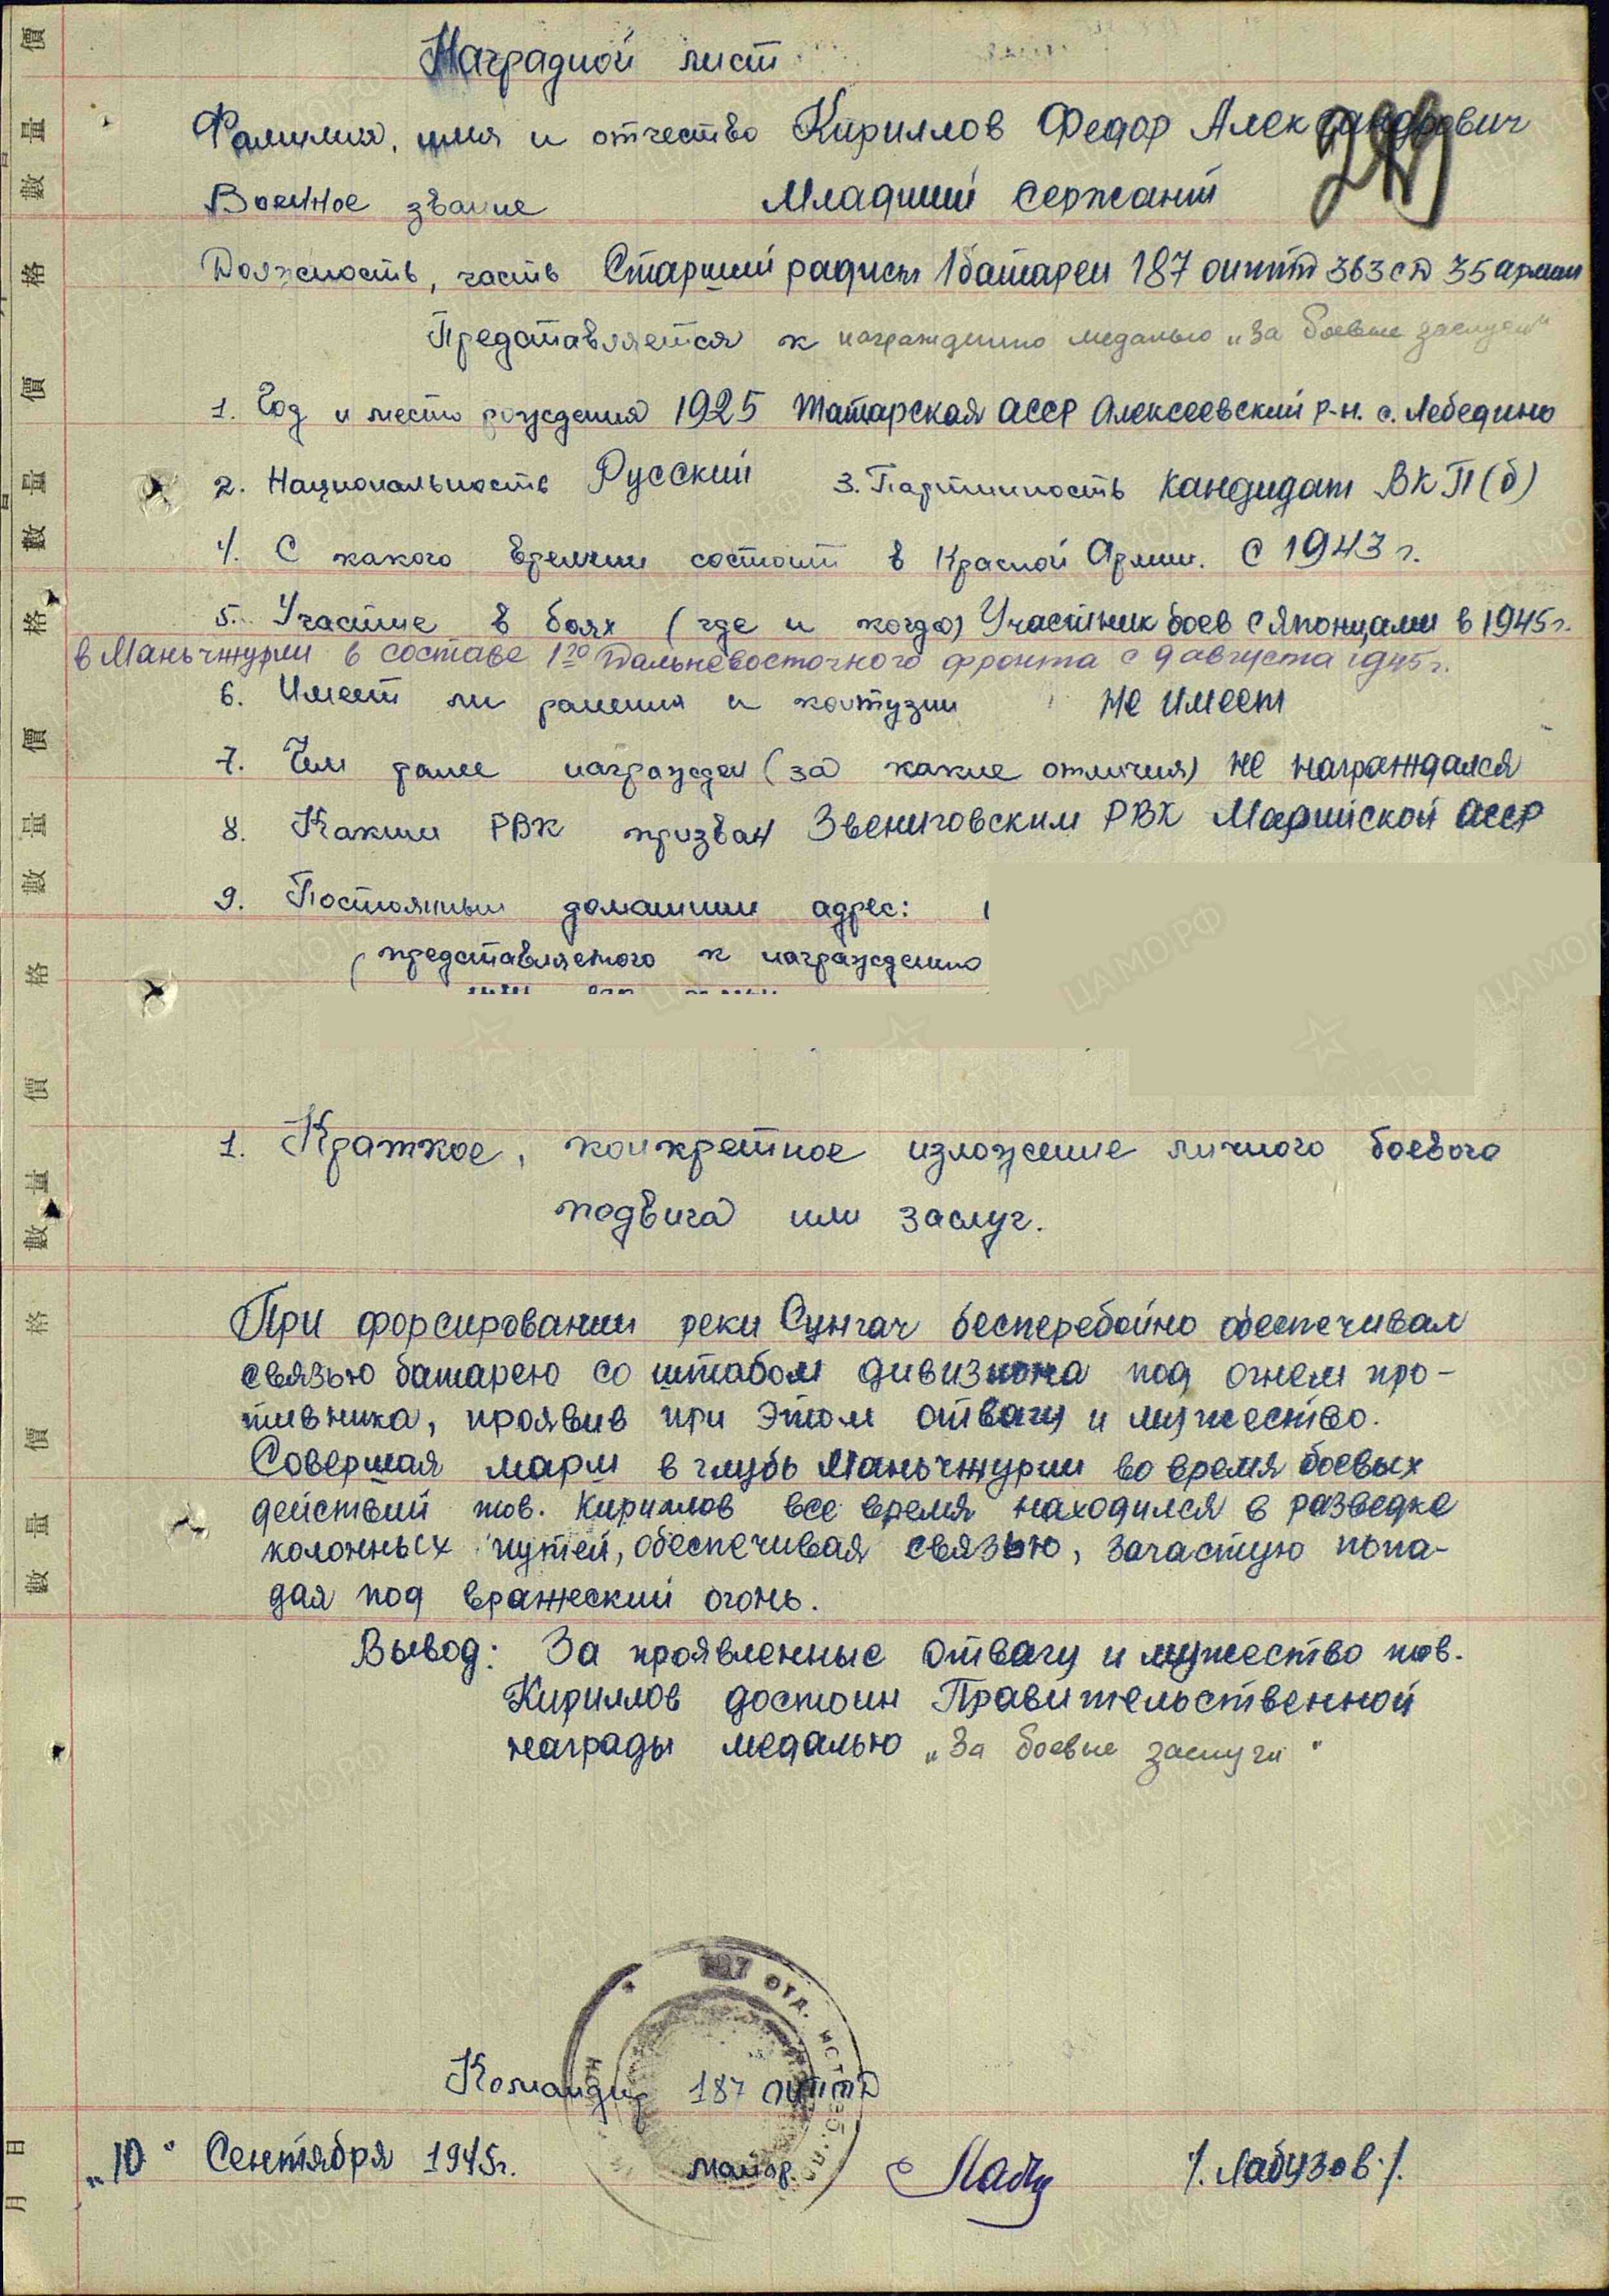 Наградной лист
Фамилия, имя и отчество Кириллов Федор Александрович
Военное звание Младший сержант
Должность, часть Старший радист 1 батареи 187 оиптд 363 сд 35 армии
Представляется к награждению медалью „За боевые заслуги"
1. Год и место рождения 1925 Татарская АССР Алексеевский р-н. с. Лебедино
2. Национальность Русский 3. Партийность кандидат ВКП(б)
4. С какого времени состоит в Красной Армии. С 1943 г.
5. Участие в боях (где и когда) Участник боев с Японцами в 1945 г.
в Маньчжурии в составе 1го Дальневосточного фронта с 9 августа 1945 г.
6. Имеет ли ранения и контузии не имеет
7. Чем ранее награжден (за какие отличия) не награждался
8. Каким РВК призван Звениговским РВК Марийской АССР
9. Постоянный домашний адрес:
представляемого к награждению
1. Краткое, конкретное изложение личного боевого
подвига или заслуг.
При форсировании реки Сунгач бесперебойно обеспечивал
связью батарею со штабом дивизиона под огнем про-
тивника, проявив при этом отвагу и мужество.
Совершая марш в глубь Маньчжурии во время боевых
действий тов. Кириллов все время находился в разведке
колонных путей, обеспечивая связью, зачастую попа-
дая под вражеский огонь.
Вывод: За проявленные отвагу и мужество тов.
Кириллов достоин Правительственной
награды медалью „За боевые заслуги"
Командир 187 оиптд
„10" Сентября 1945г. майор. /. Лабузов. /.